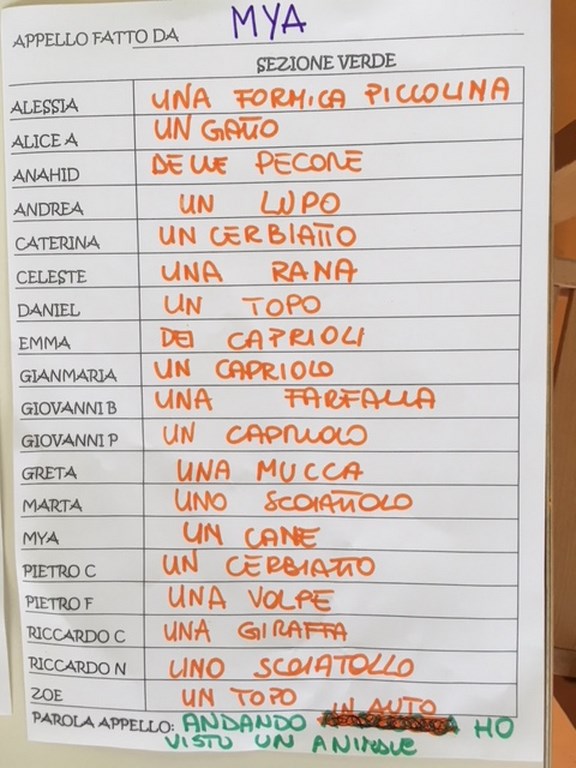 APPELLO FATTO DA MYA
SEZIONE VERDE
ALESSIA UNA FORMICA PICCOLINA
ALICE A UN GATTO
ANAHID DELLE PECORE
ANDREA UN LUPO
CATERINA UN CERBIATTO
CELESTE UNA RANA
DANIEL UN TOPO
EMMA DEI CAPRIOLI
GIANMARIA UN CAPRIOLO
GIOVANNI B UNA FARFALLA
GIOVANNI P UN CAPRIOLO
GRETA UNA MUCCA
MARTA UNO SCOIATTOLO
MYA UN CANE
PIETRO C UN CERBIATTO
PIETRO F UNA VOLPE
RICCARDO C UNA GIRAFFA
RICCARDO N UNO SCOIATOLLO
ZOE UN TOPO
IN AUTO
PAROLA APPELLO: ANDANDO HO
VISTO UN ANIMALE